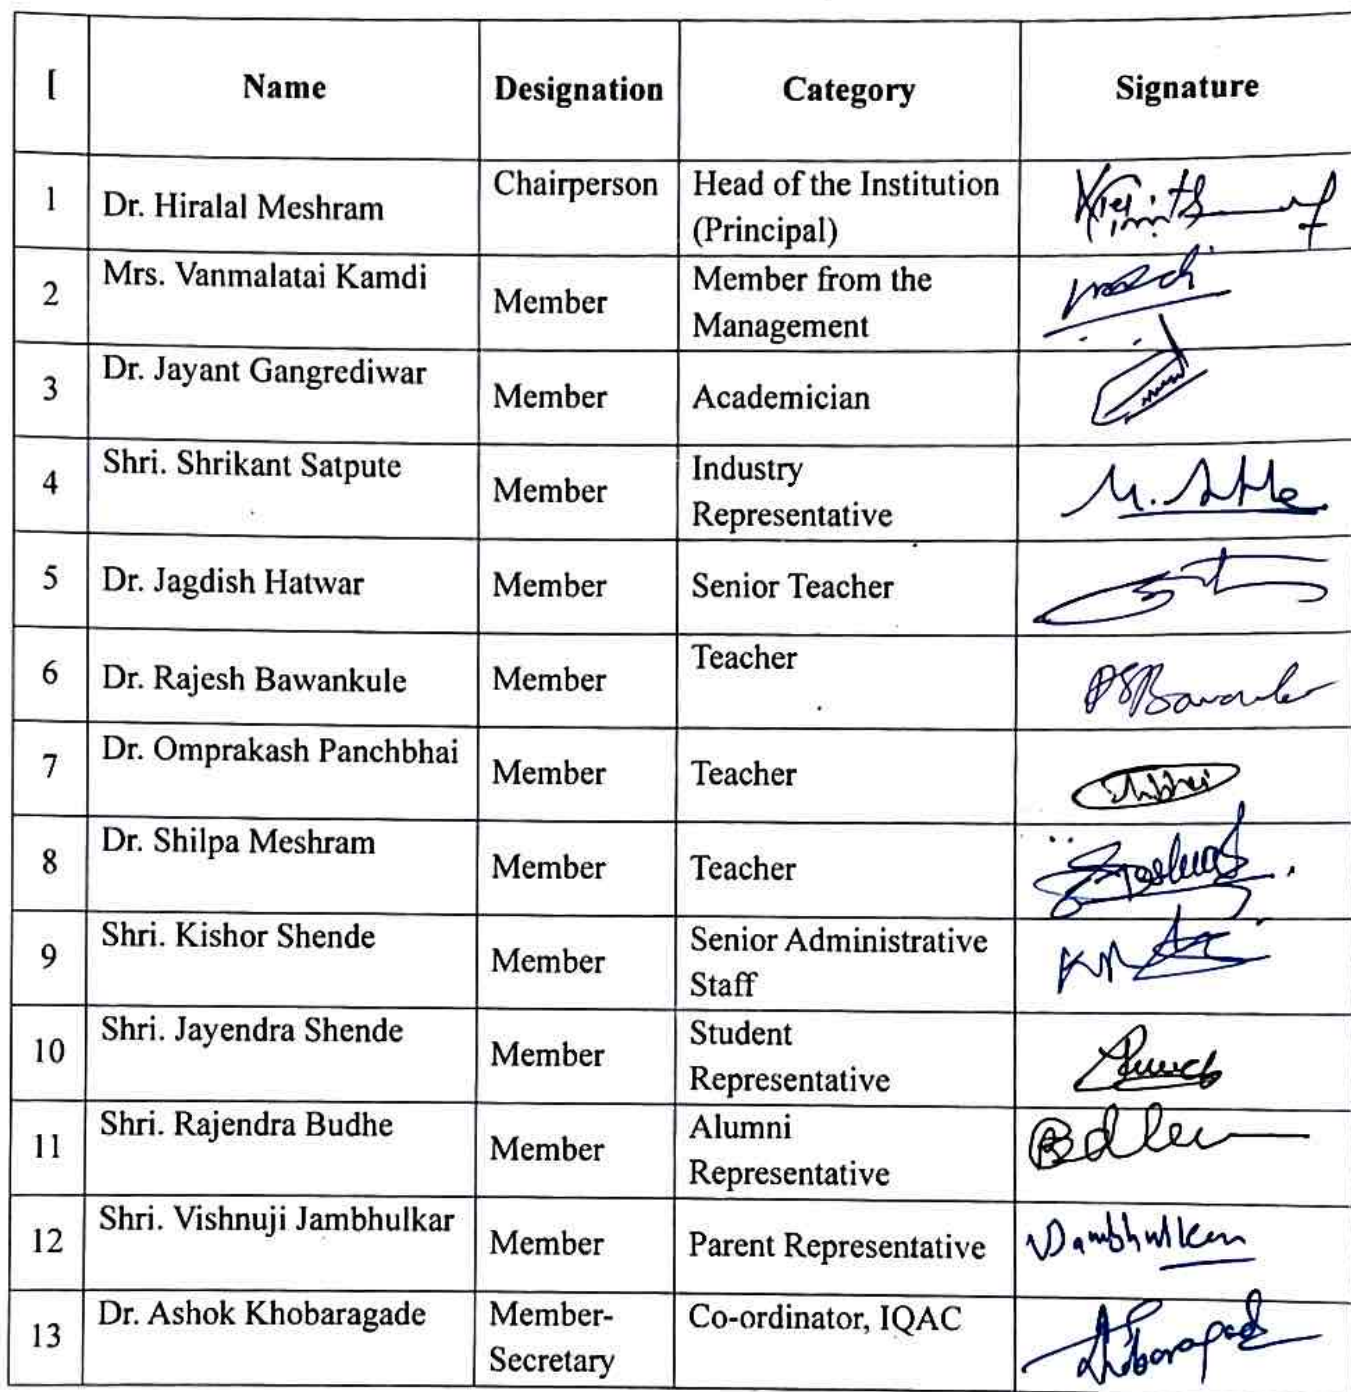 [ Name Designation Category Signature
1 Dr. Hiralal Meshram Chairperson Head of the Institution
(Principal)
2 Mrs. Vanmalatai Kamdi Member Member from the
Management
3 Dr. Jayant Gangrediwar Member Academician
4 Shri. Shrikant Satpute Member Industry
Representative
5 Dr. Jagdish Hatwar Member Senior Teacher
6 Dr. Rajesh Bawankule Member Teacher
7 Dr. Omprakash Panchbhai Member Teacher
8 Dr. Shilpa Meshram Member Teacher
9 Shri. Kishor Shende Member Senior Administrative
Staff
10 Shri. Jayendra Shende Member Student
Representative
11 Shri. Rajendra Budhe Member Alumni
Representative
12 Shri. Vishnuji Jambhulkar Member Parent Representative
13 Dr. Ashok Khobaragade Member- Co-ordinator, IQAC
Secretary